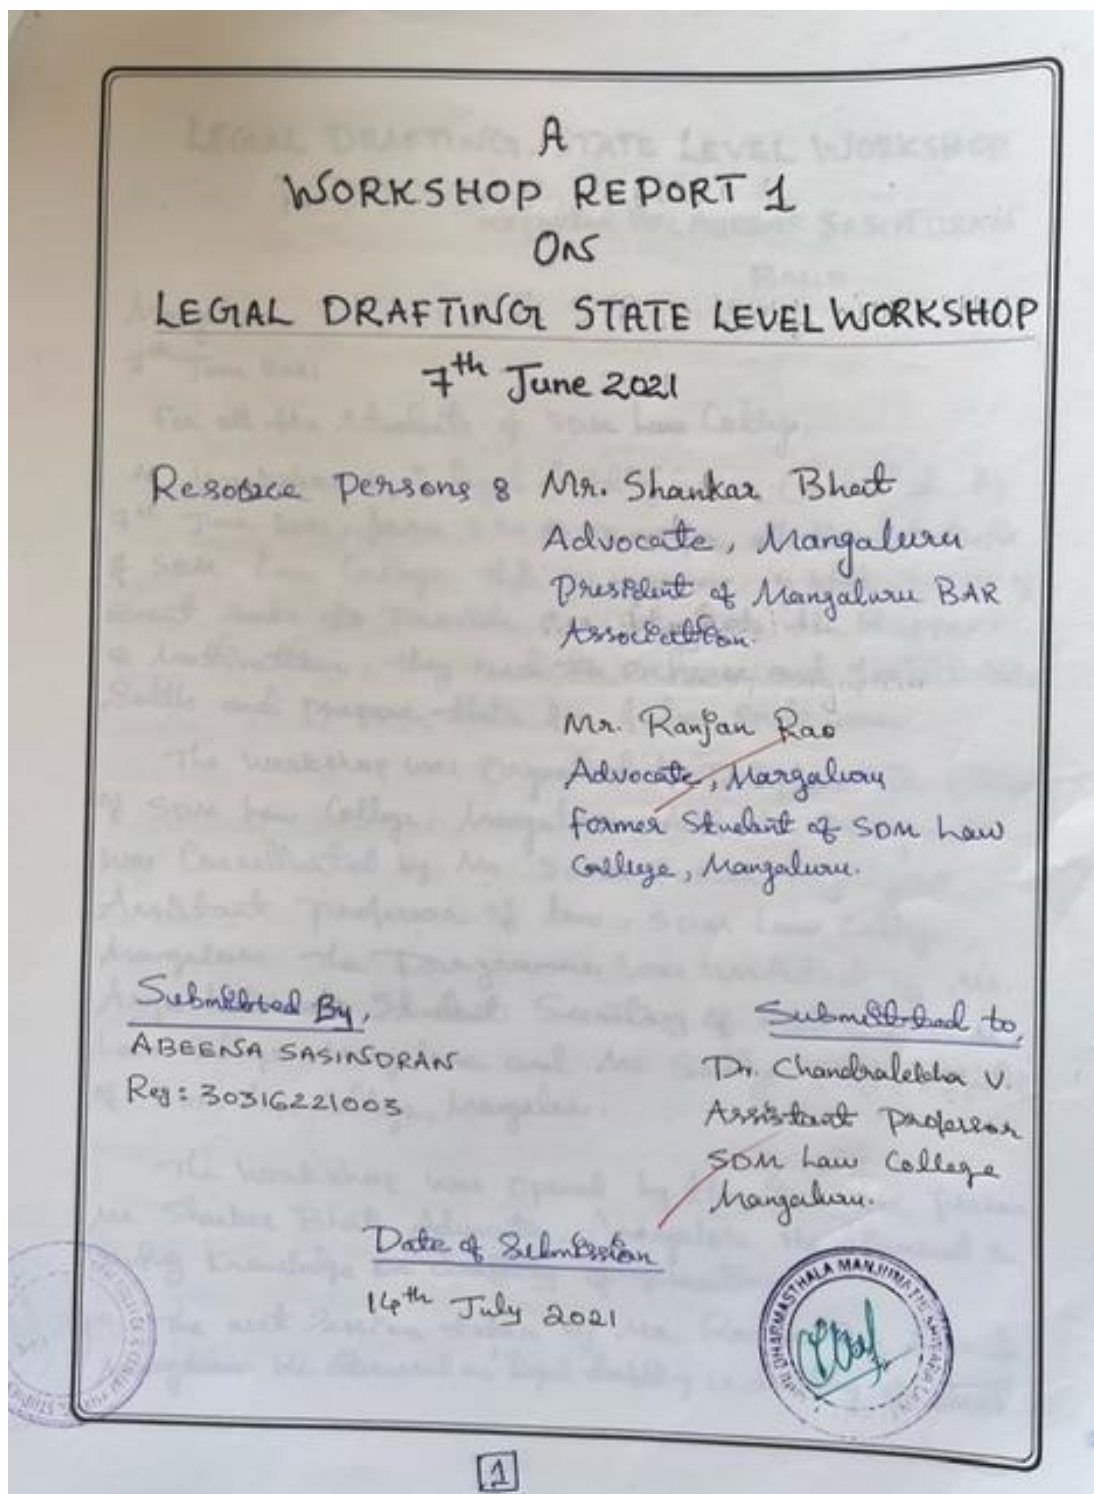 A
WORKSHOP REPORT 1
ON
LEGAL DRAFTING STATE LEVEL WORKSHOP
7th June 2021
Resource Persons : Mr. Shankar Bhat
Advocate, Mangaluru
President of Mangaluru BAR
Association.
Mr. Ranjan Rao
Advocate, Mangaluru
former Student of SDM Law
College, Mangaluru.
Submitted By,
ABEENA SASINDRAN
Reg: 30316221003
Submitted to,
Dr. Chandralekha V.
Assistant Professor
SDM Law College
Mangaluru.
Date of Submission
14th July 2021
DHARMASTHALA MANJUNATHESHWARA LAW
1